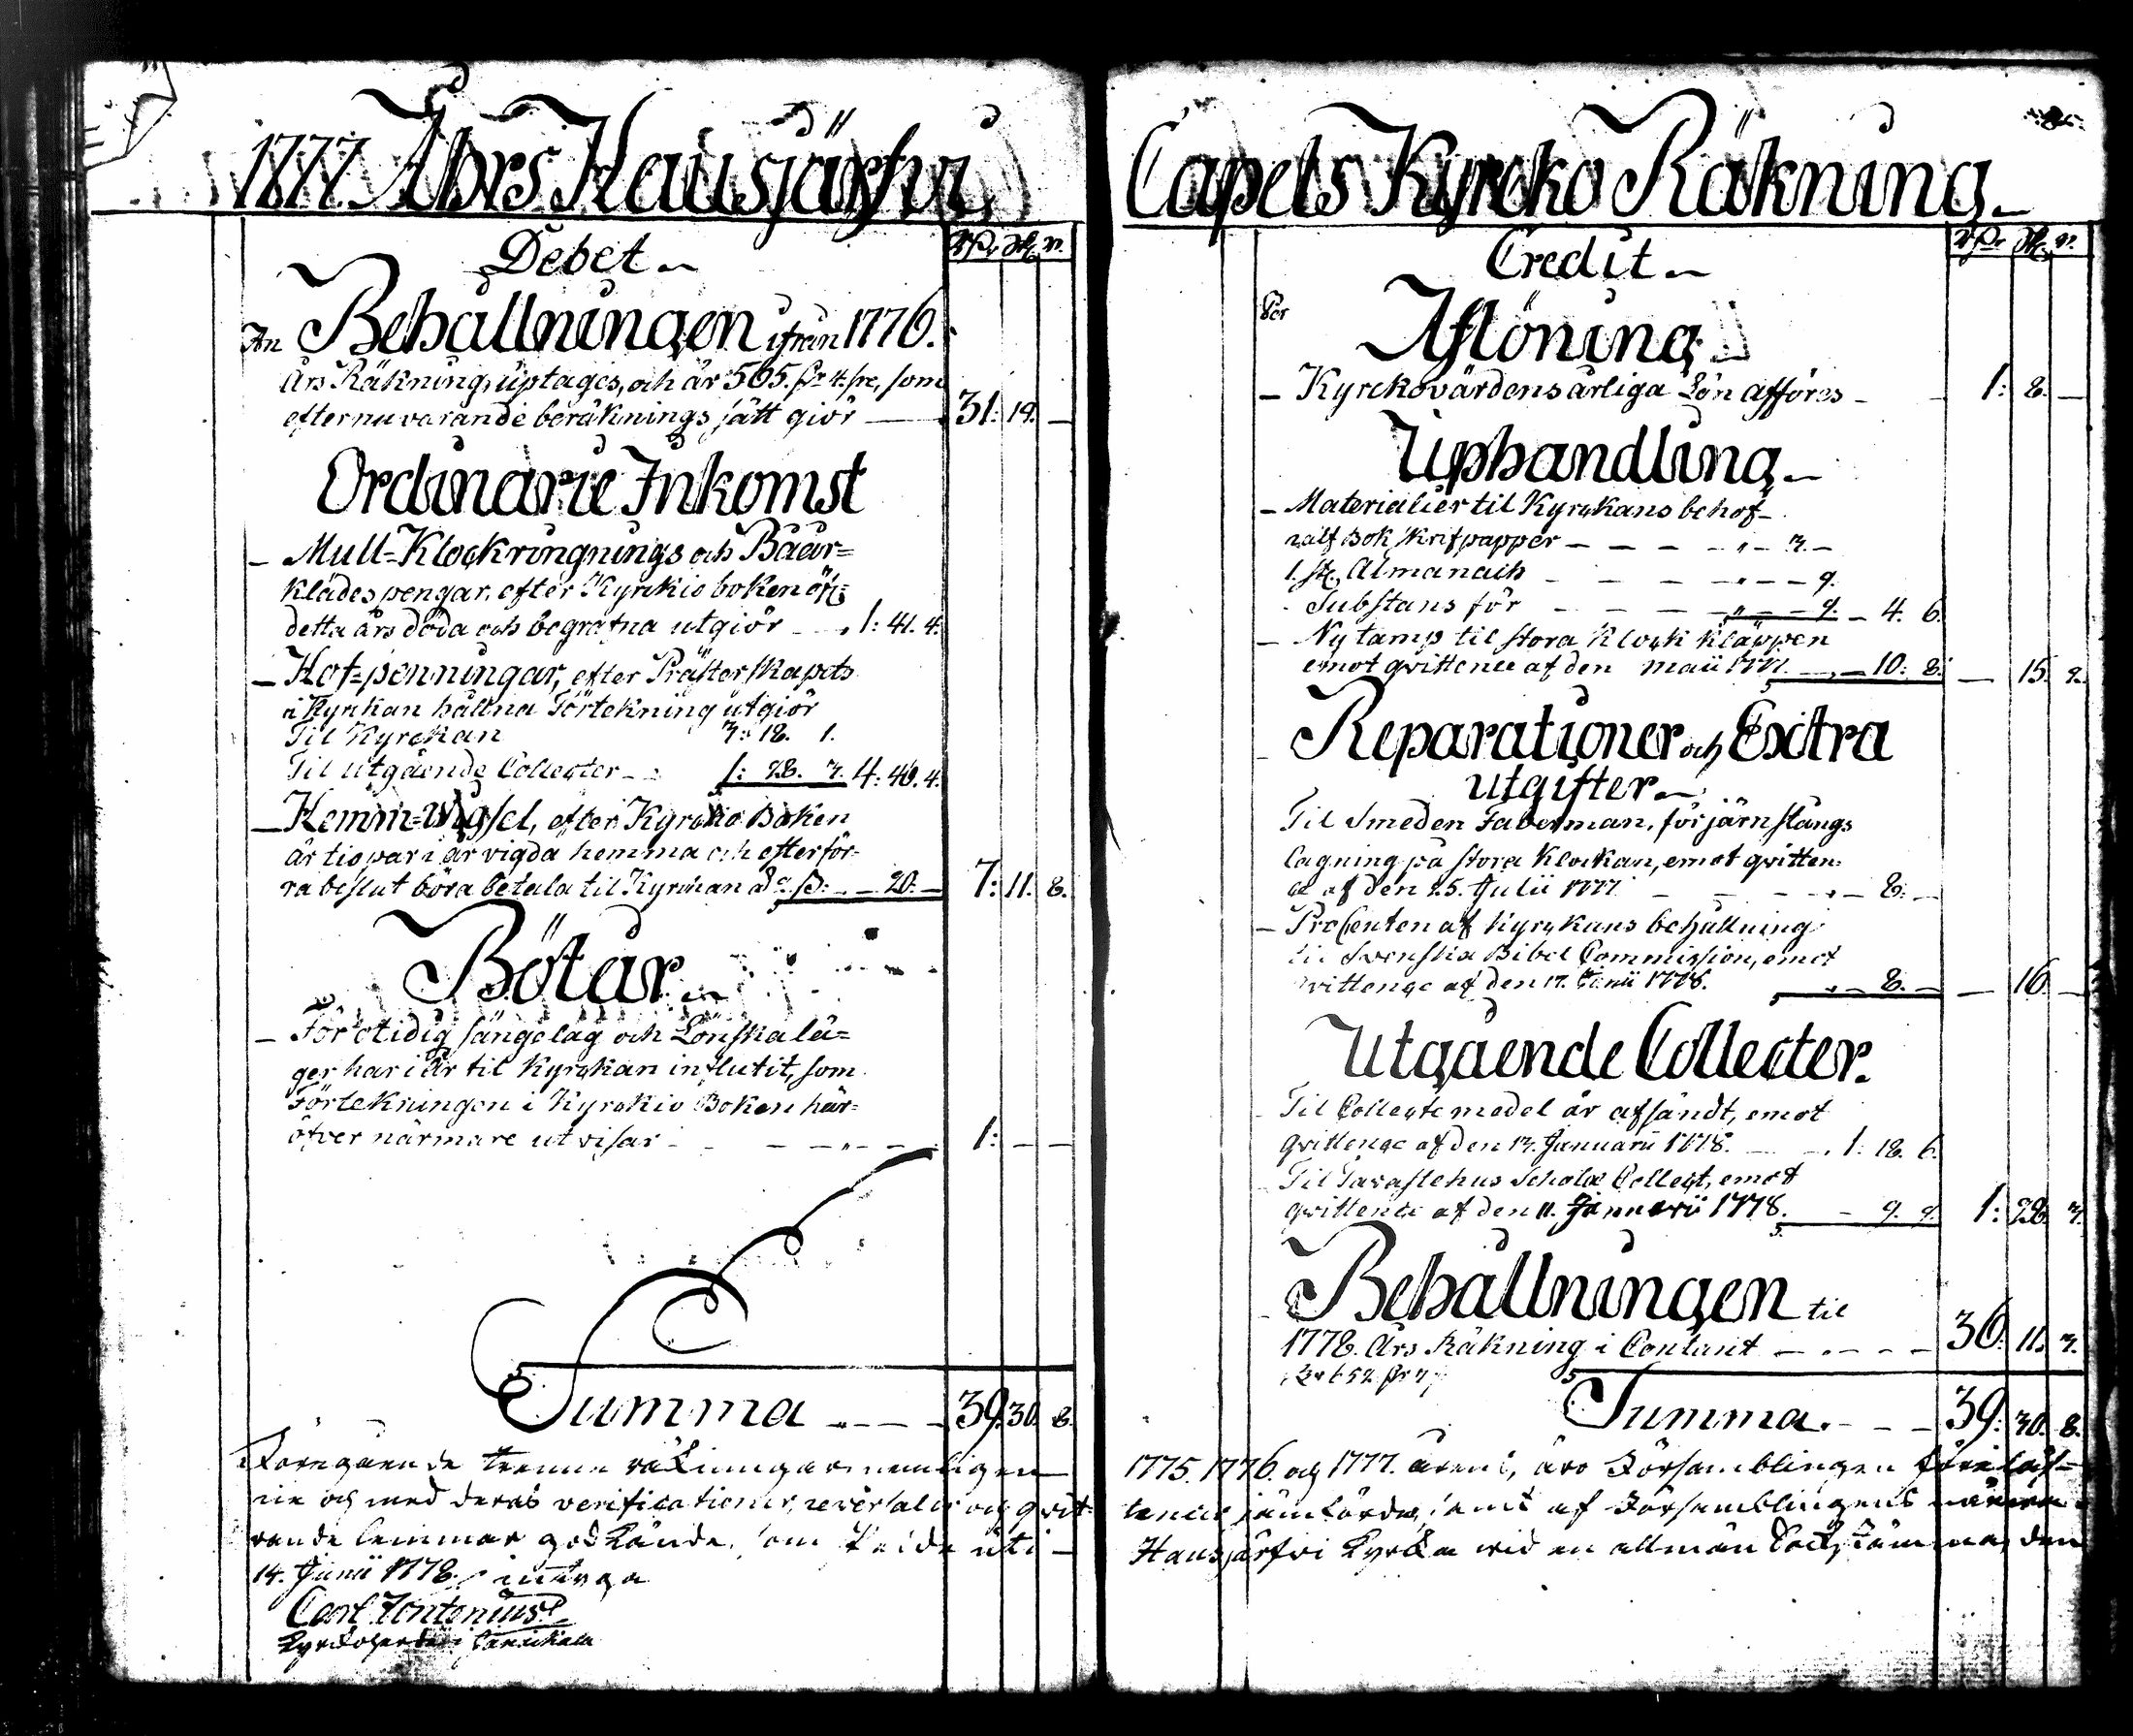 1777. Åhrs Hausjärfvi
Debet
An Behållningen ifrån 1776.
Års Räkning uptages, och är 565. 4. som
efter nu varande beräknings sätt giör 31: 19. —
Ordinarie Inkomst
— Mull-Klockringnings och Båår=
klädes pengar, efter Kyrckio boken öf:
detta års döda och begrafna utgiör 1: 41. 4.
— Hof=penningar, efter Prästerskapets
i Kyrckan hållna Förtekning utgiör
Til Kyrckan 3: 12. 1.
Til utgående Collecter 1: 28. 3. 4: 40. 4.
— Hemm=Wigsel, efter Kyrckio Boken
är tio par i år vigda hemma och efter för-
ra beslut böra betala til Kyrckan — 20: — 7: 11. 8.
Böter
— För otidig sängelag och Lönska lä=
ger har i år til Kyrckan influtit, som
Förtekningen i Kyrckio Boken här=
öfver närmare utvisar 1: — —
Summa 39: 30. 8.
Föregående trenne räkningar nemligen
och med deras verificationer, reversaler och qvit=
rande lemmar godkände, som skiedde uti
14. Junii 1778. intyga
Carl Fontenius
Kyrckoherde i Janackala
Capels Kyrcko Räkning
Credit
Per
Aflöning
— Kyrckovärdens årliga Lön afföres 1: 8. —
Uphandling
— Materialier til Kyrckans behof
half Bok skrifpapper — 3. —
1. st. Almanach — 9.
Substans för 4. 6.
— Ny tamp til stora Klock kläppen
emot qvittence af den Maii 1777. — 10: 8. — 15. 2.
— Reparationer och Extra
utgifter
Til Smeden Faberman, för järnstångs
lagning på stora Klockan, emot qvitten-
ce af den 25. Julii 1777. — 8: —
— Procenten af Kyrckans behållning
Svenska Bibel Commission, emot
qvittence af den 17. Junii 1778. — 8. — — 16. —
Utgående Collecter.
Til Collecte medel är afsändt, emot
qvittence af den 13. Januarii 1778. 1: 18. 6.
Til Tavastehus Schola Collect, emot
qvittence af den 11. Januarii 1778. — 9. 9. 1: 28. 3.
— Behållningen til
1778. Års Räkning i Contant 36: 11. 3.
652
Summa 39: 30. 8.
1775. 1776. och 1777. årens, äro Församblingen föreläs=
tencer jämförde, samt af Församblingens närva
Hausjärfvi Kyrcka wid en allmän Sockstämma, den